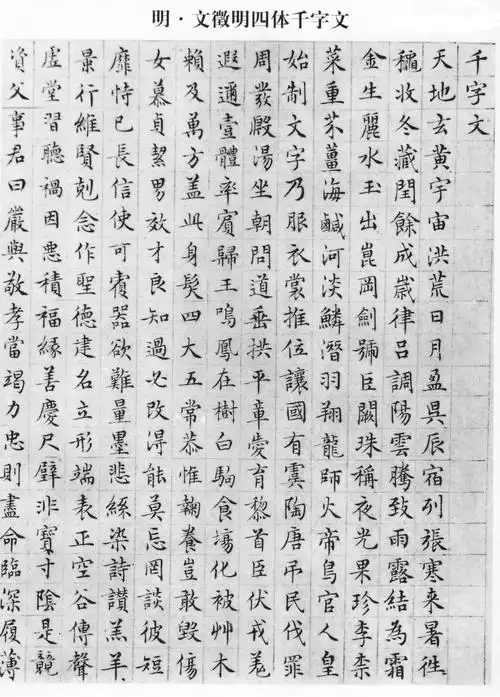 明·文徵明四体千字文
千字文
天地玄黃宇宙洪荒日月盈昃辰宿列張寒来暑徃
穐收冬藏閏餘成歲律呂調陽雲騰致雨露結為霜
金生麗水玉出崑岡劍號巨闕珠稱夜光果珍李柰
菜重芥薑海鹹河淡鱗潛羽翔龍師火帝鳥官人皇
始制文字乃服衣裳推位讓國有虞陶唐弔民伐罪
周發殷湯坐朝問道垂拱平章愛育黎首臣伏戎羌
遐邇壹體率賓歸王鳴鳳在樹白駒食場化被艸木
賴及萬方盖此身髮四大五常恭惟鞠養豈敢毀傷
女慕貞潔男效才良知過必改得能莫忘罔談彼短
靡恃已長信使可覆器欲難量墨悲絲染詩讚羔羊
景行維賢剋念作聖德建名立形端表正空谷傳聲
虛堂習聽禍因惡積福緣善慶尺璧非寶寸陰是競
資父事君曰嚴與敬孝當竭力忠則盡命臨深履薄